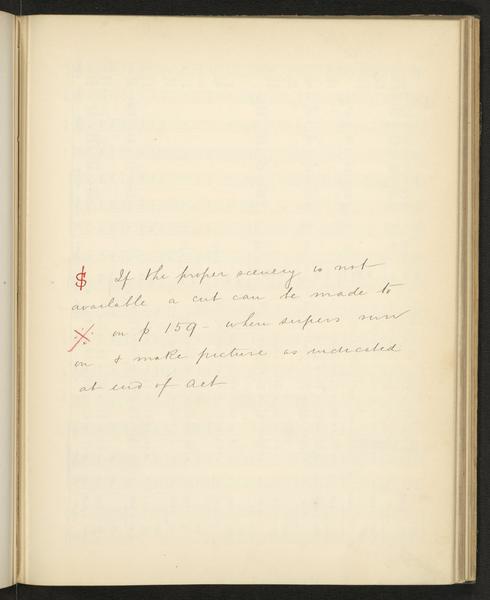 $ If the proper scenery is not
available a cut can be made to
※ on p 159 - when supers run
on & make picture as indicated
at end of Act